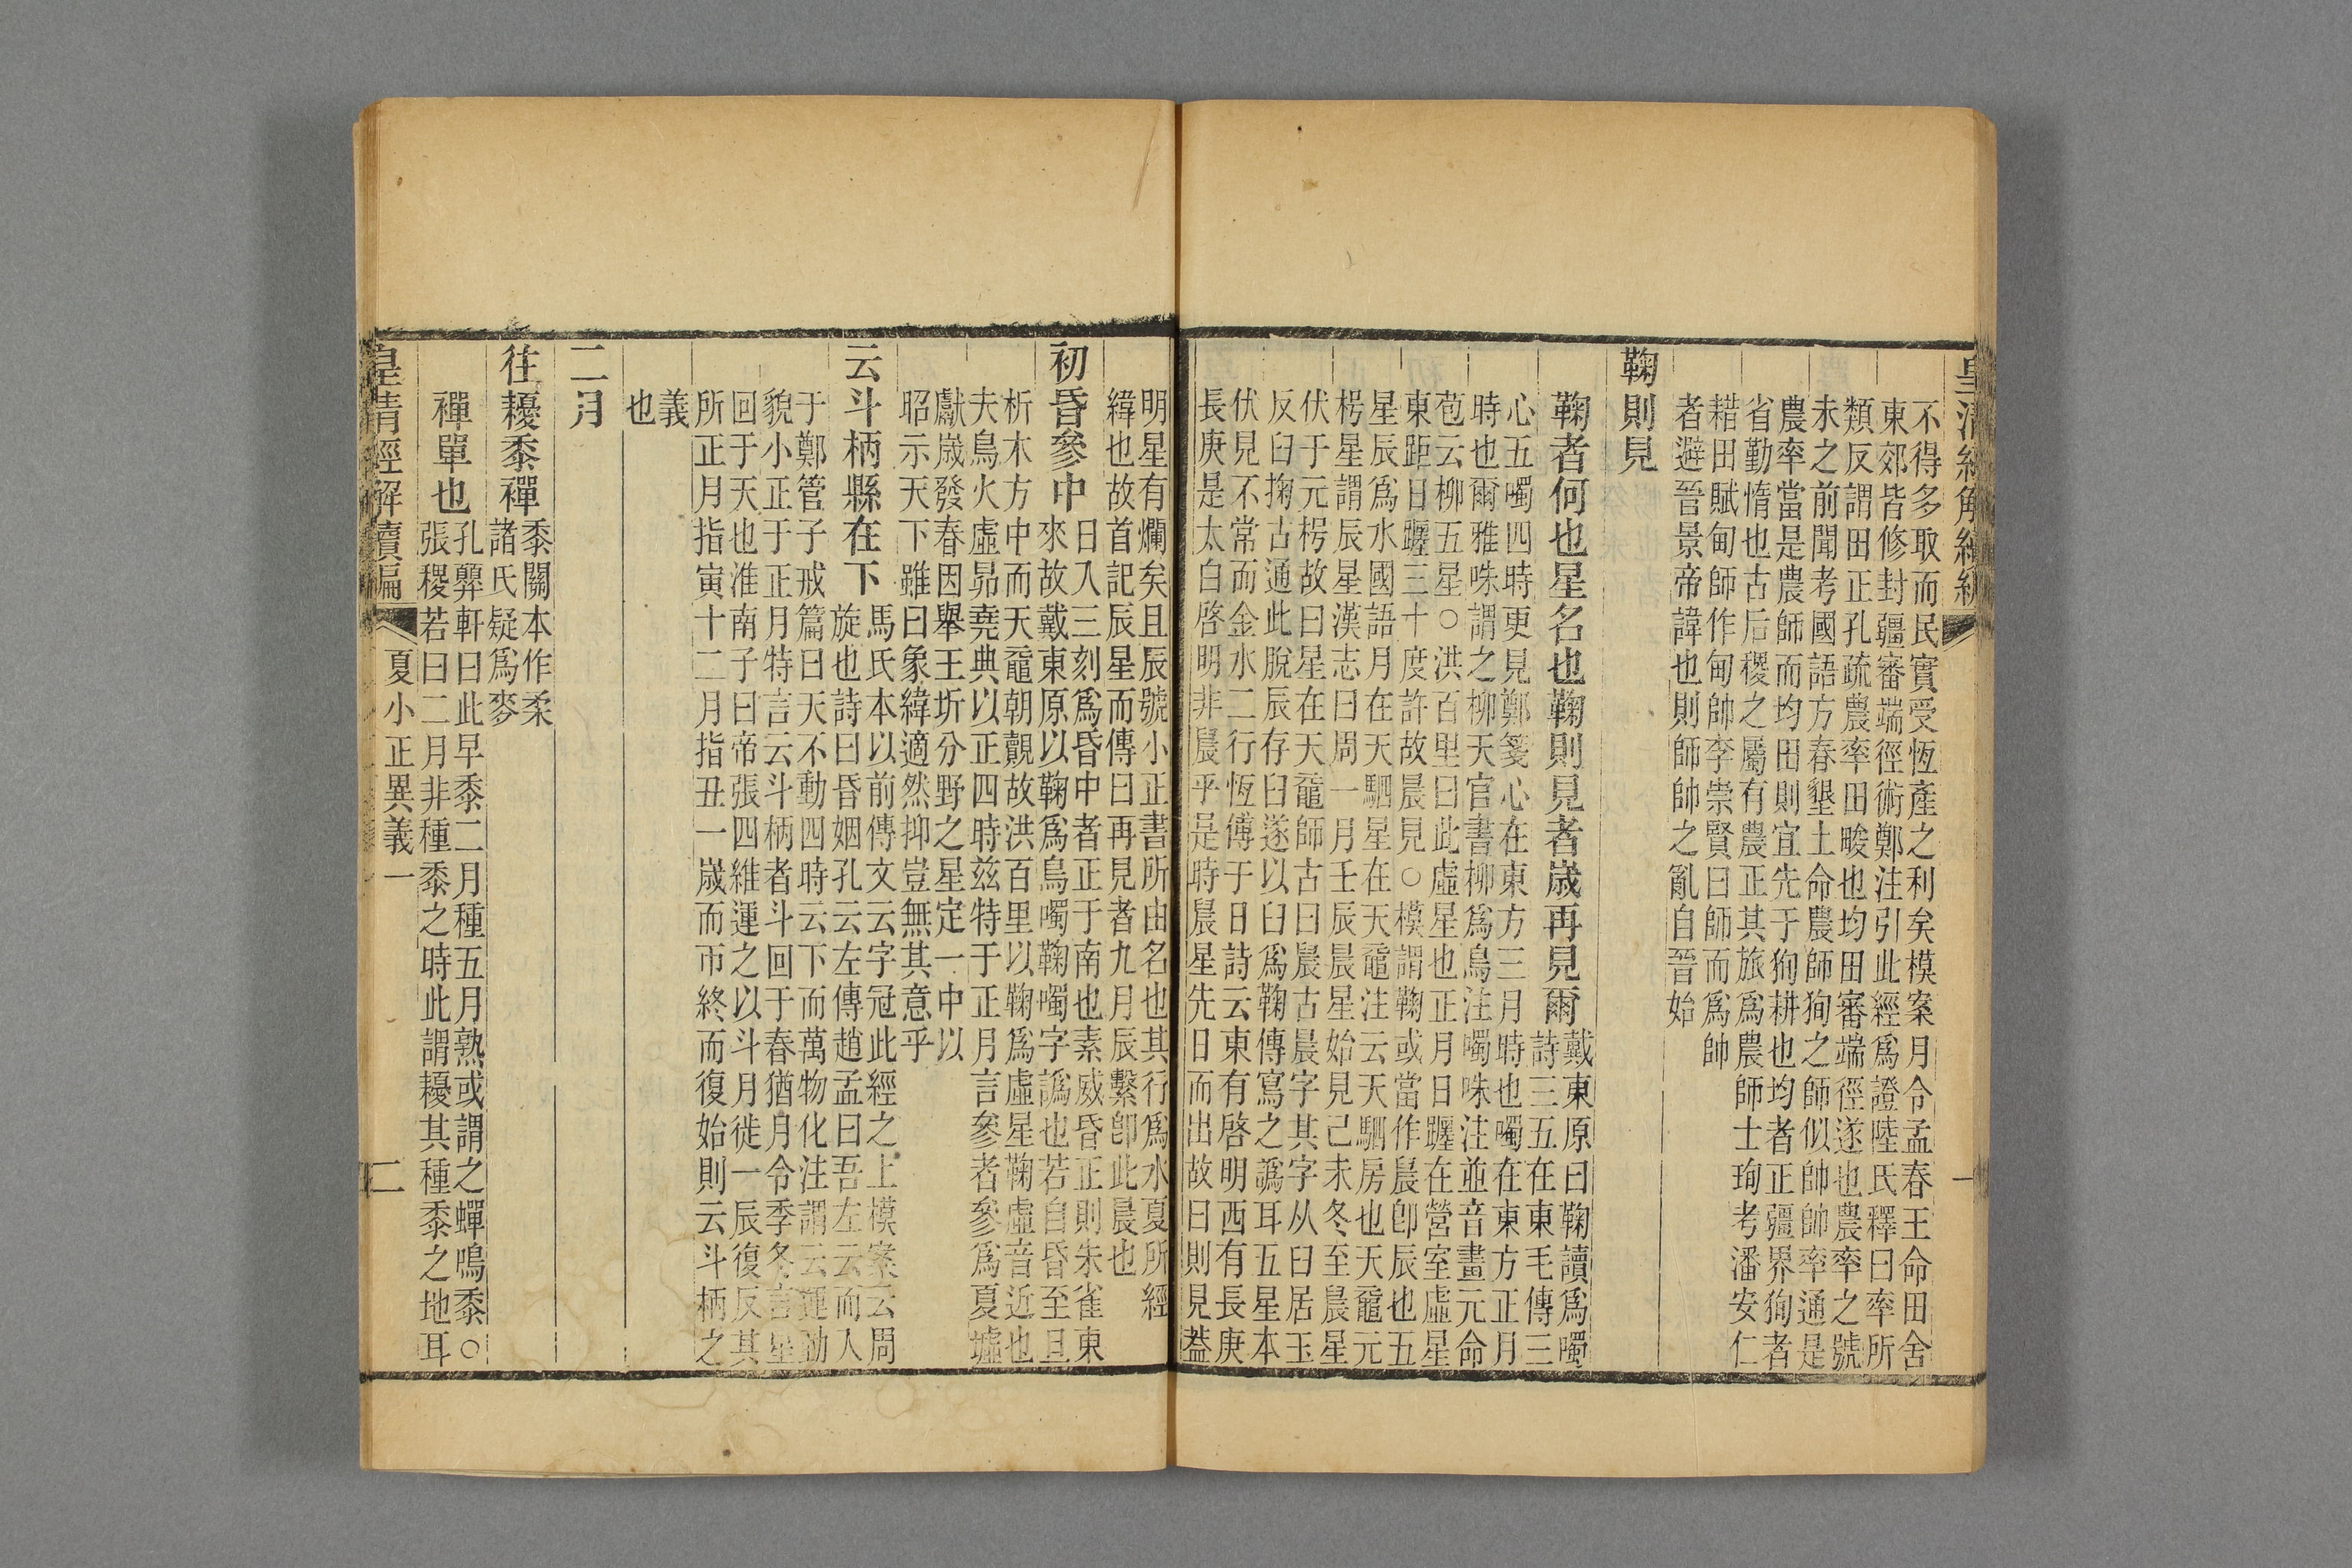 不得多取而民實受恆產之利矣模案月令孟春王命田舍
東郊皆修封疆審端徑術鄭注引此經爲證陸氏釋曰率所
類反謂田正孔疏農率田畯也均田審端徑遂也農率之號
未之前聞考國語方春墾土命農師狥之師似帥帥率通是
農率當是農師而均田則宜先于狥耕也均者正疆界狥者
省勤惰也古后稷之屬有農正其旅爲農師士珣考潘安仁
耤田賦甸師作甸帥李崇賢曰師而爲帥
者避晉景帝諱也則師帥之亂自晉始
鞠則見
鞠者何也星名也鞠則見者歲再見爾
戴東原曰鞠讀爲噣
詩三五在東毛傳三
心五噣四時更見鄭箋心在東方三月時也噣在東方正月
時也爾雅咮謂之柳天官書柳爲鳥注噣咮注並音晝元命
苞云柳五星○洪百里曰此虛星也正月日躔在營室虛星
東距日躔三十度許故晨見○模謂鞠或當作晨卽辰也五
星辰爲水國語月在天駟星在天黿注云天駟房也天黿元
枵星謂辰星漢志曰周一月壬辰晨星始見己未冬至晨星
伏于元枵故曰星在天黿師古曰晨古晨字其字从臼居玉
反臼掬古通此脫辰存臼遂以臼爲鞠傳寫之譌耳五星本
伏見不常而金水二行恆傅于日詩云東有啓明西有長庚
長庚是太白啓明非晨乎是時晨星先日而出故曰則見葢
明星有爛矣且辰號小正書所由名也其行爲水夏所經
緯也故首記辰星而傳曰再見者九月辰繫卽此晨也
初昏參中
日入三刻爲昏中者正于南也素威昏正則朱雀東
來故戴東原以鞠爲鳥噣鞠噣字譌也若自昏至旦
析木方中而天黿朝覿故洪百里以鞠爲虛星鞠虛音近也
夫鳥火虛昴堯典以正四時玆特于正月言參者參爲夏墟
獻歲發春因舉王圻分野之星定一中以
昭示天下雖曰象緯適然抑豈無其意乎
云斗柄縣在下
馬氏本以前傳文云字冠此經之上模案云周
旋也詩曰昏姻孔云左傳趙孟曰吾左云而人
于鄭管子戒篇曰天不動四時云下而萬物化注謂云運動
貌小正于正月特言云斗柄者斗回于春猶月令季冬言星
回于天也淮南子曰帝張四維運之以斗月徙一辰復反其
所正月指寅十二月指丑一歲而帀終而復始則云斗柄之
義
也
二月
往耰黍襌
黍關本作柔
諸氏疑爲麥
襌單也
孔㢲軒曰此早黍二月種五月熟或謂之蟬鳴黍○
張稷若曰二月非種黍之時此謂耰其種黍之地耳
皇清經解續編
夏小正異義一
二